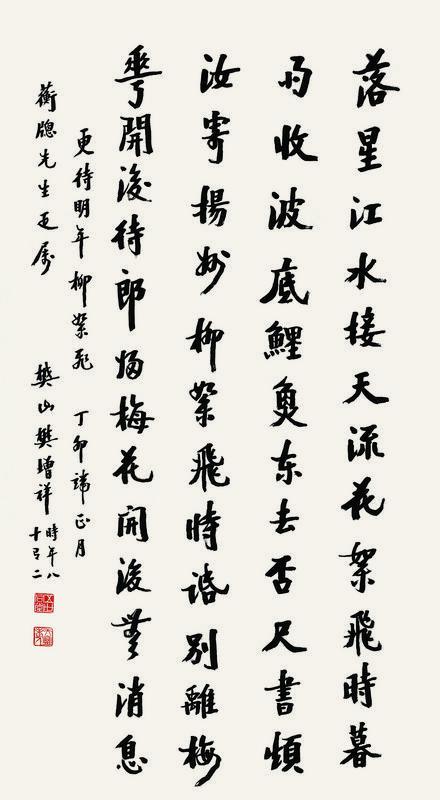 落星江水接天流花絮飛時暮
雨收波底鯉魚东去否尺書煩
汝寄揚州柳絮飛時話別離梅
華開後待郎歸梅花開後無消息
更待明年柳絮飛 丁卯端正月
蘅牕先生正屬 樊山樊增祥 時年八
十有二